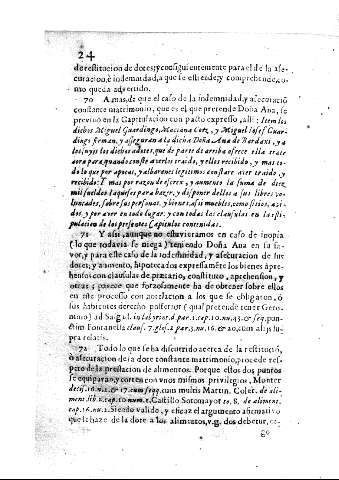 24
de restitucion de dotes, y consiguientemente para el de la ase-
curacion, è indemnidad, a que se estiende, y comprehende, co-
mo queda advertido.
70 A mas de que el caso de la indemnidad, y asecuració
constante matrimonio, que es el que pretende Doña Ana, se
previno en la Capitulacion con pacto expresso, alli: Item los
dichos Miguel Guardingo, Maciana Cotz, y Miguel Iosef Guar-
dingo firman, y asseguran a la dicha Doña Ana de Bardaxi, y a
los suyos los dichos dotes, que de parte de arriba ofrece ella traer
aora para quando conste averlos traido, y ellos recibido, y mas to-
do lo que por apocas, y albaranes legitimos constare aver traido, y
recibido: T mas por razon de excrex, y aumento la suma de diez
mil sueldos Iaqueses para hazer, y disponer dellos a sus libres vo-
luntades, sobre sus personas, y bienes, assi muebles, como sitios, avi-
dos, y por aver en todo lugar: y con todas las clausulas en la esti-
pulacion de los presentes Capitulos contenidas.
71 Y assi, aunque no estuvieramos en caso de inopia
(lo que todavia se niega) teniendo Doña Ana en su fa-
vor, y para este caso de la indemnidad, y asecuracion de sus
dotes, y aumento, hipotecados expressamẽte los bienes apre-
hensos con clausulas de precario, constituto, aprehension, y
otras; parece que forzosamente ha de obtener sobre ellos
en este processo con antelacion a los que se obligaron, ó
sus habientes derecho posterior (qual pretende tener Gero-
nimo) ad Salgad. in labyr. cred. par. 1. cap. 10. nu. 43. & seq. pun-
ctim Fontanella claus. 7. glos. 2. par. 3. nu. 16. & 20. cum alijs su-
pra relatis.
72 Todo lo que se ha discurrido acerca de la restitució,
ò asecuracion de la dote constante matrimonio, procede res-
pecto de la prestacion de alimentos. Porque estos dos puntos
se equiparan, y corren con vnos mismos privilegios, Monter
decis. 16. n. 1. & 17. cum seqq. com multis Martin. Coler. de ali-
ment. lib. 2. cap. 10. num. 1. Castillo Sotomayor to. 8. de aliment.
cap. 16. nu. 1. Siendo valido, y eficaz el argumento afirmativo
que se haze de la dote a los alimentos, v. g. dos debetur, er-
go